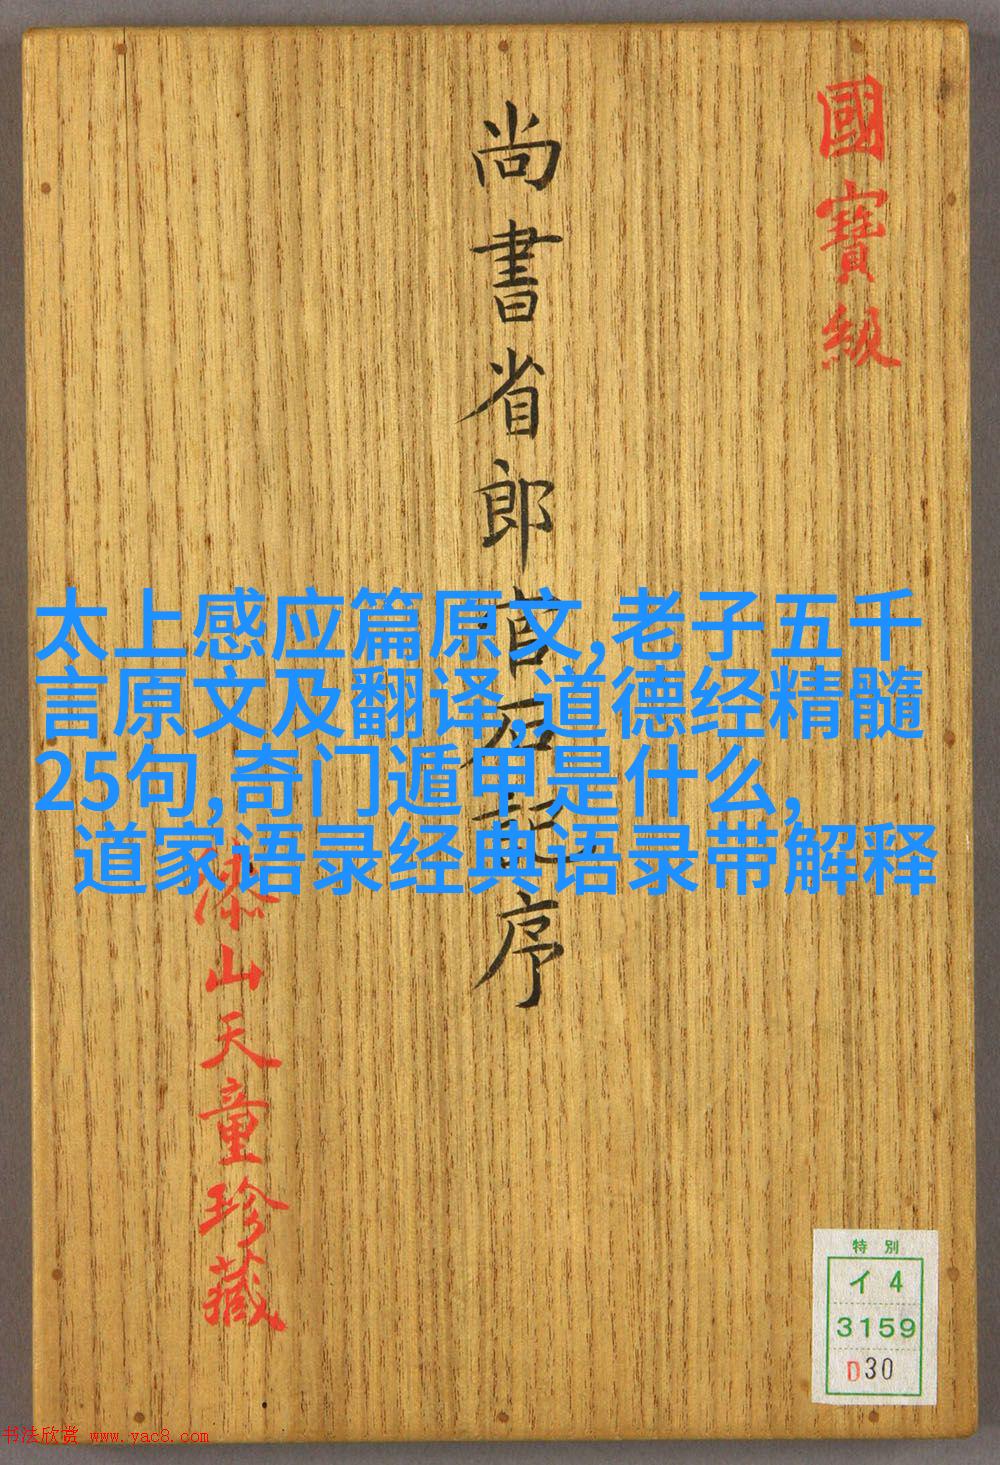 國寶級
尚書省郎官石記序
漆山天童珍藏
太上感应篇原文,老子五千
言原文及翻译,道德经精髓
25句,奇门遁甲是什么,
道家语录经典语录带解释
特別
イ4
3159
D30
书法欣赏 www.yac8.com